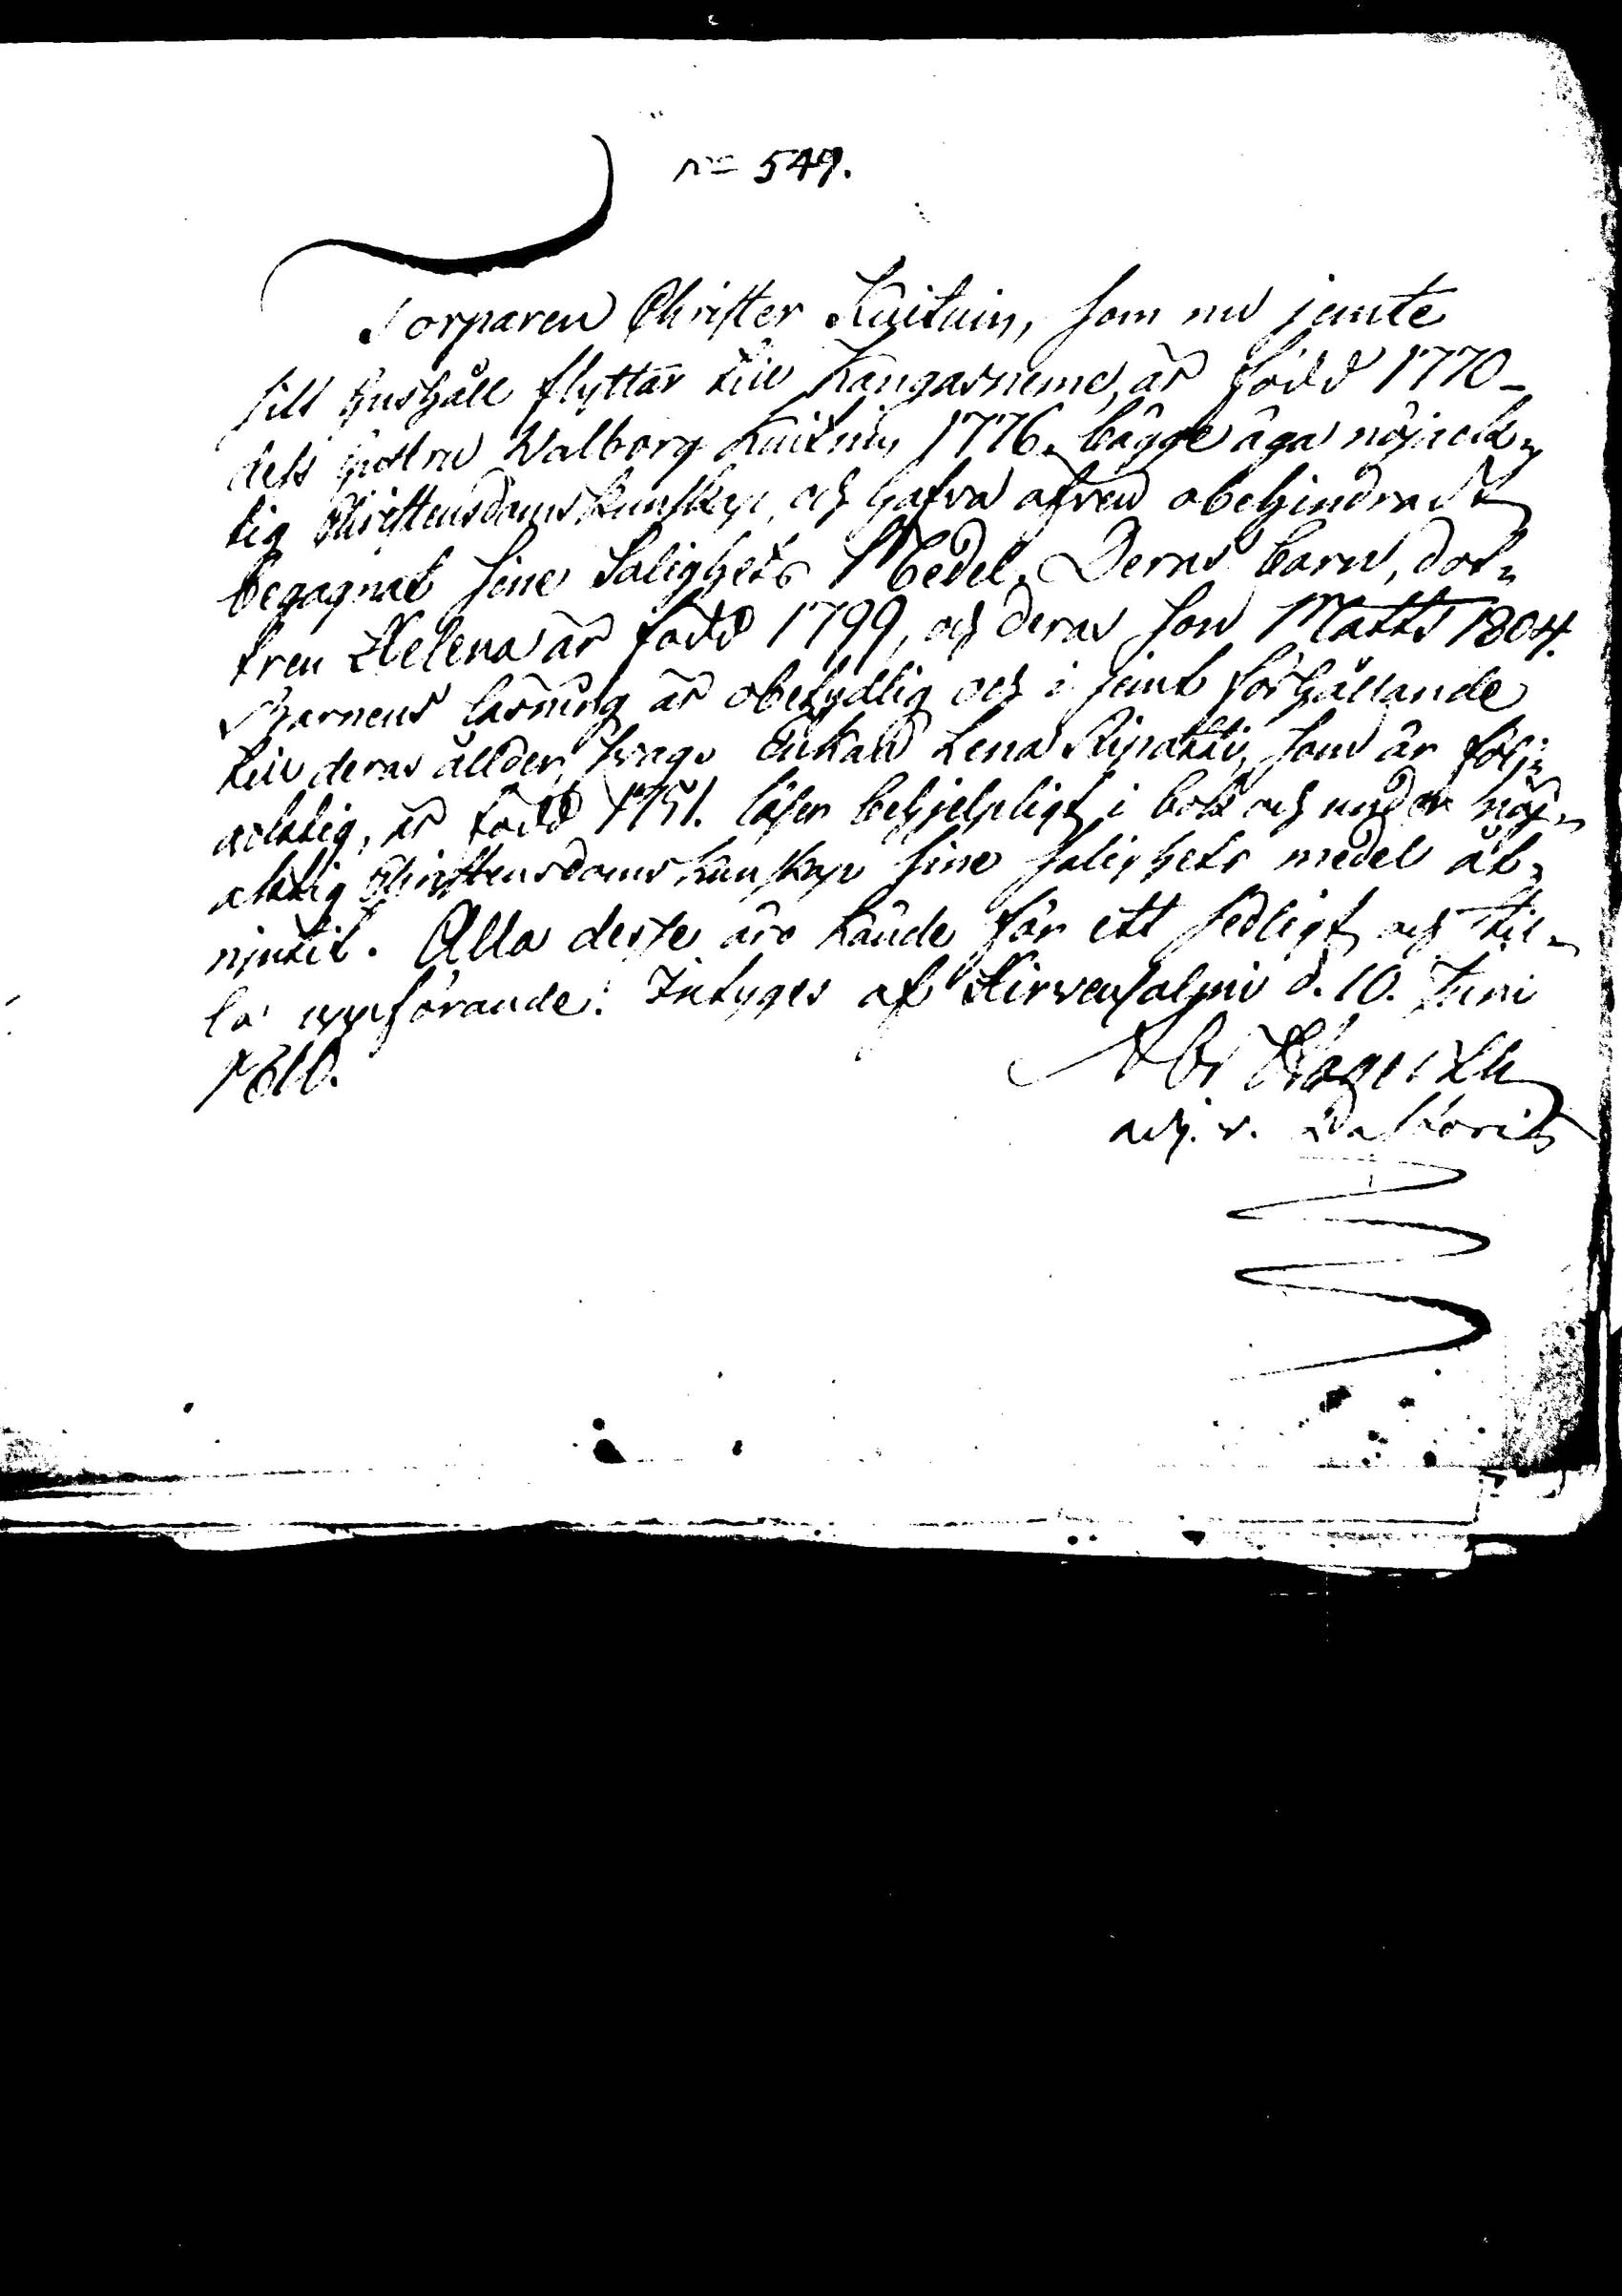 no 549.
Torparen Christer Kuituin, som nu jemte
sitt hushåll flyttar till Kangasneme, är född 1770 –
dess hustru Walborg Kuituin 1776. bägge äga nöjack=
tig Christendomskunskap, och hafva äfven obehindradt
begagnat sine Salighets Medel. Deras barn, dot=
tren Helena är född 1799, och deras son Matts 1804.
Barnens läsning är obetydlig och i jemt förhållande
till deras ållder. Enkan Lena Ripatti, som är följ=
acktig, är född 1751. läser behjelpligt i bok och under nöj=
acktig Christendoms kunskap sine salighets medel åt=
njutit. Alla desse äro kände för ett sedligt och stil=
la uppförande. Intyges af Hirvensalmi d. 10. Juni
1810.
adj. v. Pastoris